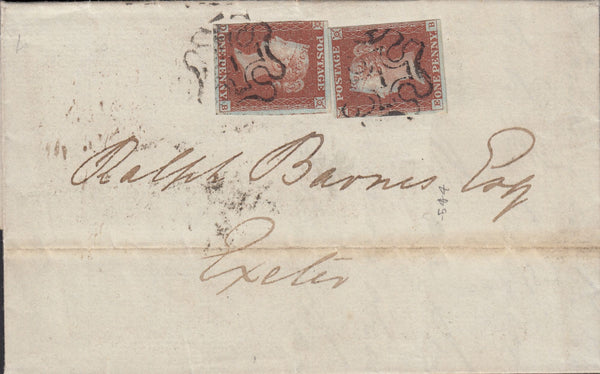 POSTAGE
ONE PENNY
D B
POSTAGE
ONE PENNY
E B
Ralph Barnes Esq
Exeter
544